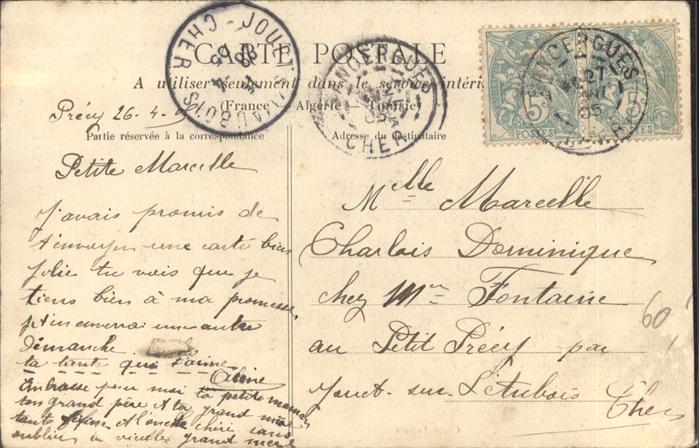 CARTE POSTALE
A utiliser seulement dans le service intérieur
(France - Algérie - Tunisie)
Précy 26-4-05
Partie réservée à la correspondance
Adresse du destinataire
JOUET-S-L'AUBOIS
CHER
SANCERGUES
CHER
05
SANCERGUES
27
05
5c
POSTES
5c
POSTES
Petite Marcelle
J'avais promis de
t'envoyer une carte bien
jolie tu vois que je
tiens bien à ma promesse
je t'en enverrai une autre
Dimanche
ta tante qui t'aime
Céline
Embrasse pour moi ta petite maman
ton grand père et ta grand mère
tante et l'oncle chéri sans
oublier ta vieille grand mère
Melle Marcelle
Charlois Dominique
chez Mme Fontaine
au Petit Précy par
Jouet-sur-l'Aubois
Cher
60